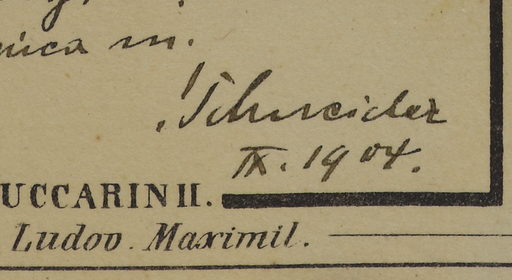 m.
! Schneider
IX. 1904.
UCCARINII.
Ludov. Maximil.